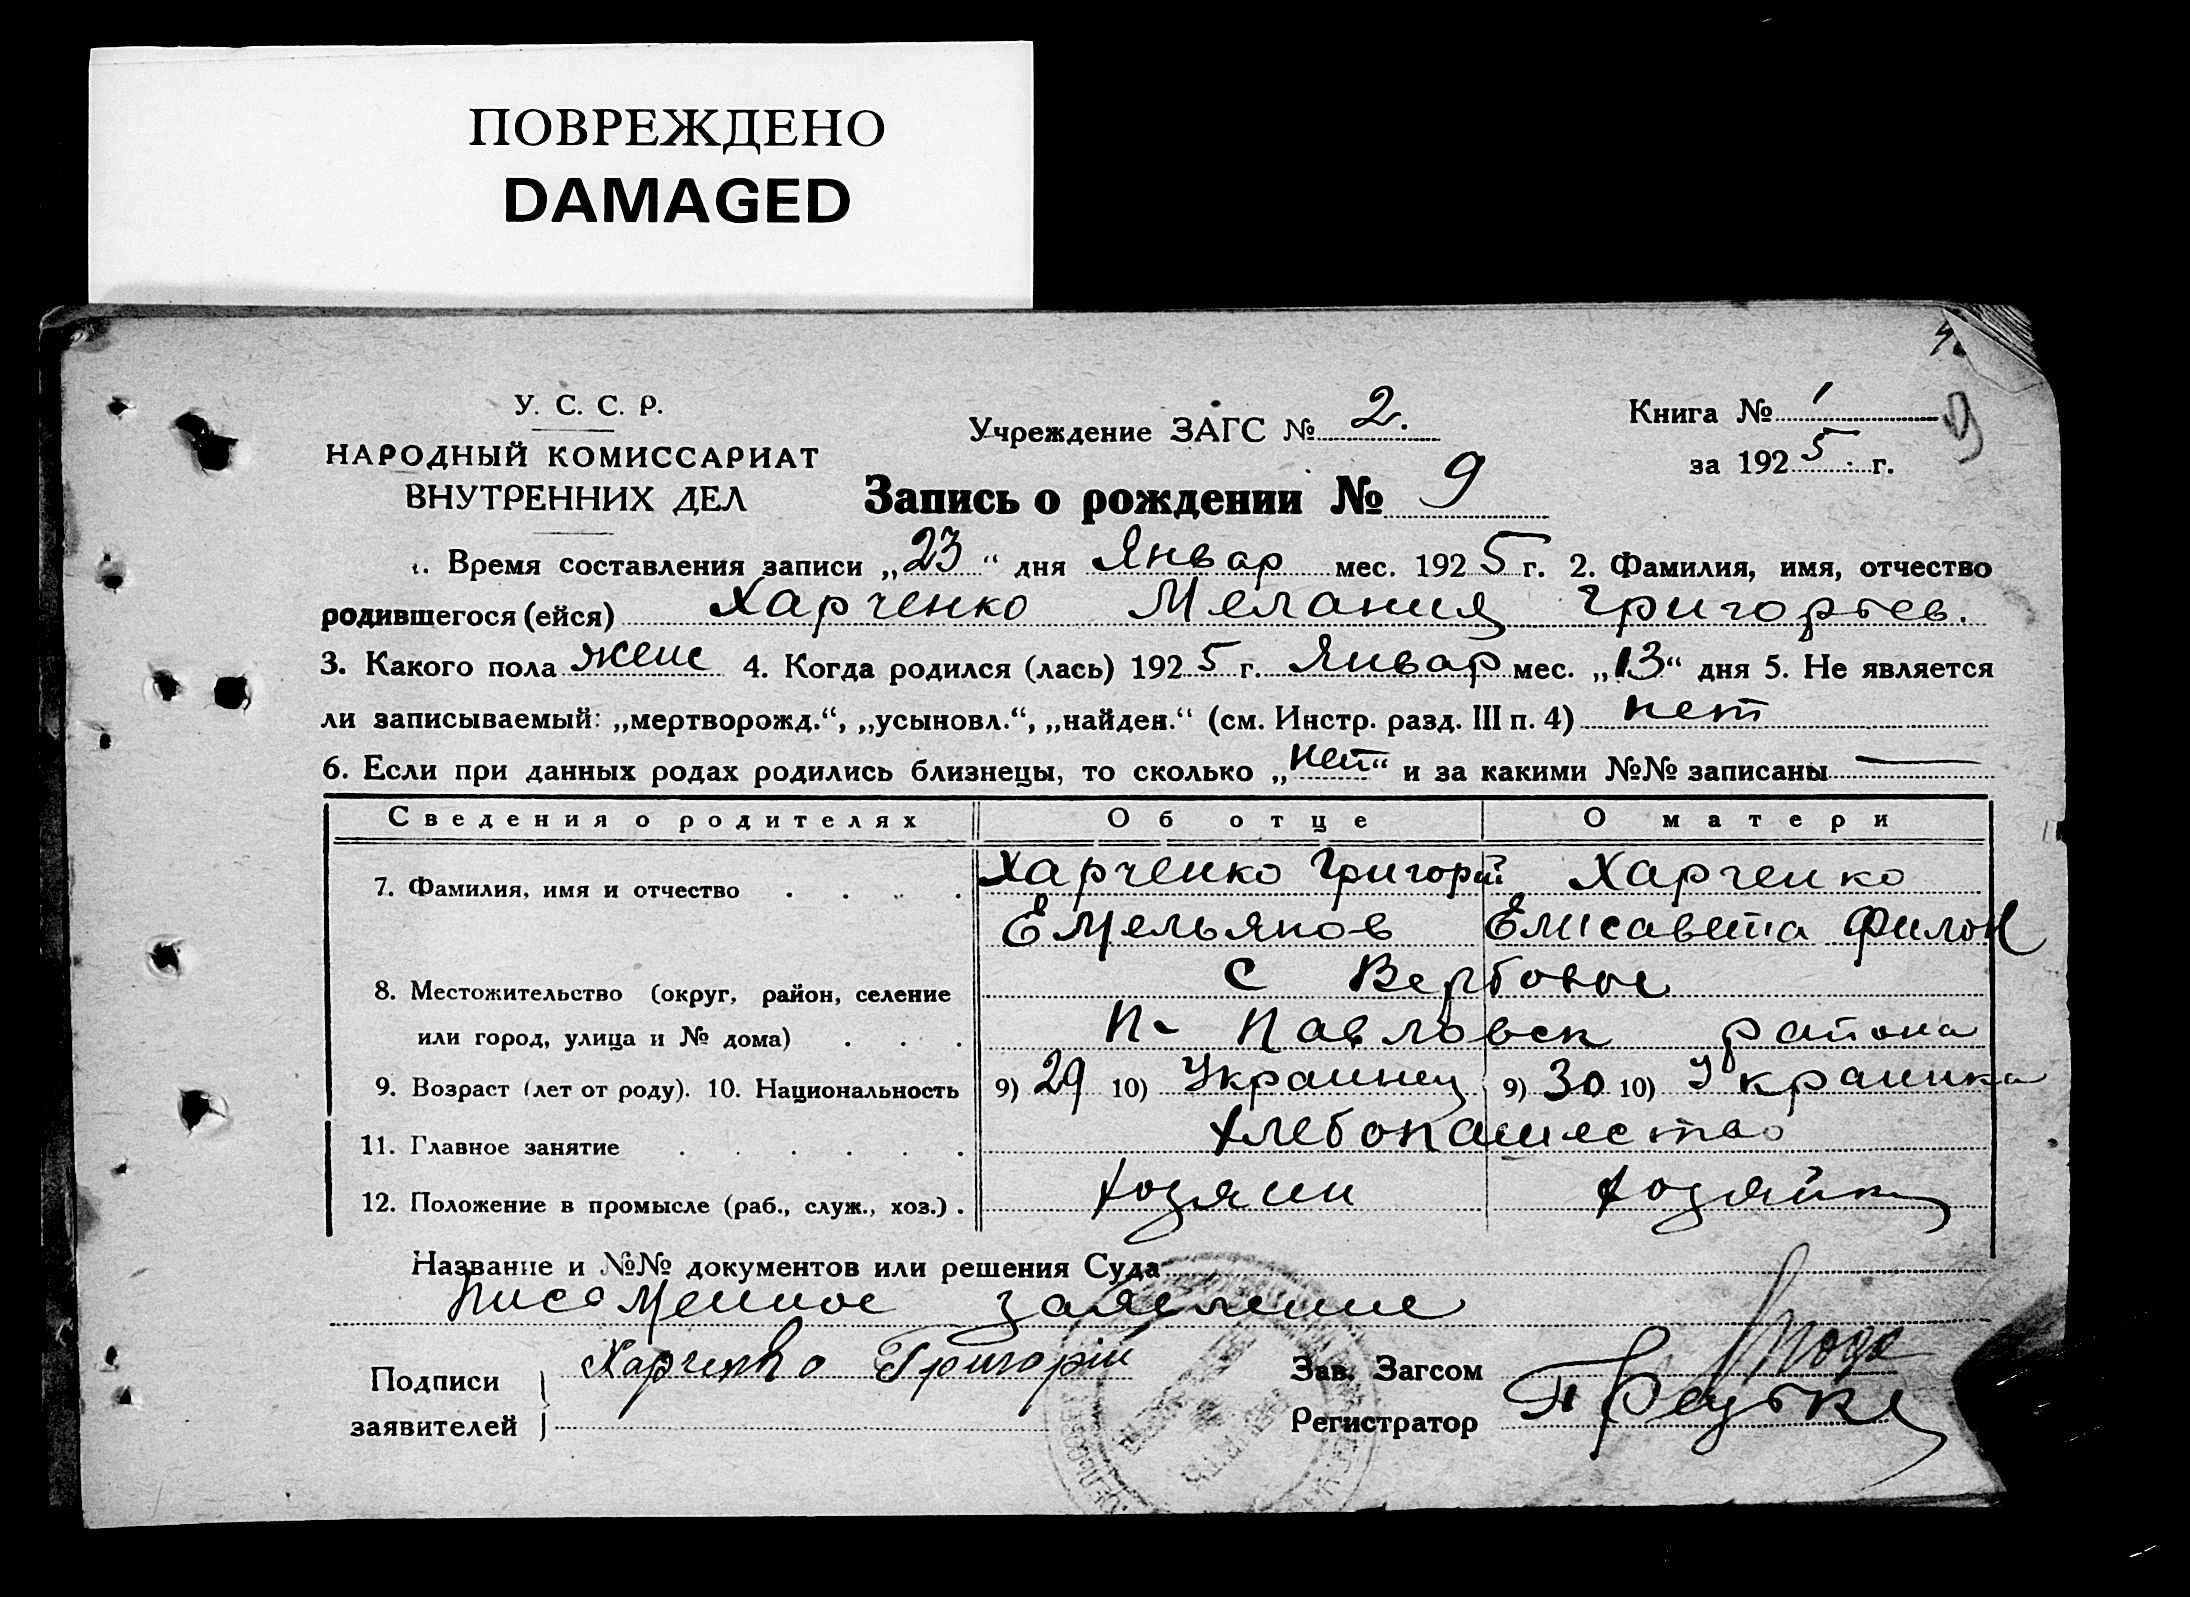 ПОВРЕЖДЕНО
DAMAGED
У. С. С. Р.
НАРОДНЫЙ КОМИССАРИАТ
ВНУТРЕННИХ ДЕЛ
Учреждение ЗАГС № 2.
Книга № 1
за 1925 г.
9
Запись о рождении № 9
1. Время составления записи „23“ дня Январ мес. 1925 г. 2. Фамилия, имя, отчество
родившегося (ейся) Харченко Мелания Григорьев.
3. Какого пола женс 4. Когда родился (лась) 1925 г. Январ мес. „13“ дня 5. Не является
ли записываемый: „мертворожд.“, „усыновл.“, „найден.“ (см. Инстр. разд. III п. 4) нет
6. Если при данных родах родились близнецы, то сколько „нет“ и за какими №№ записаны —
Сведения о родителях Об отце О матери
7. Фамилия, имя и отчество . . . . Харченко Григорій Харченко
Емельянов Елисавета Филон
8. Местожительство (округ, район, селение С Вербовое
или город, улица и № дома) . . . П- Павловск района
9. Возраст (лет от роду). 10. Национальность 9) 29 10) Украинец 9) 30 10) Украинка
11. Главное занятие . . . . . . Хлебопашество
12. Положение в промысле (раб., служ., хоз.) . Хозяин Хозяйка
Название и №№ документов или решения Суда
Писаменное заявление
Подписи Харченко Григорій Зав. Загсом
заявителей Регистратор